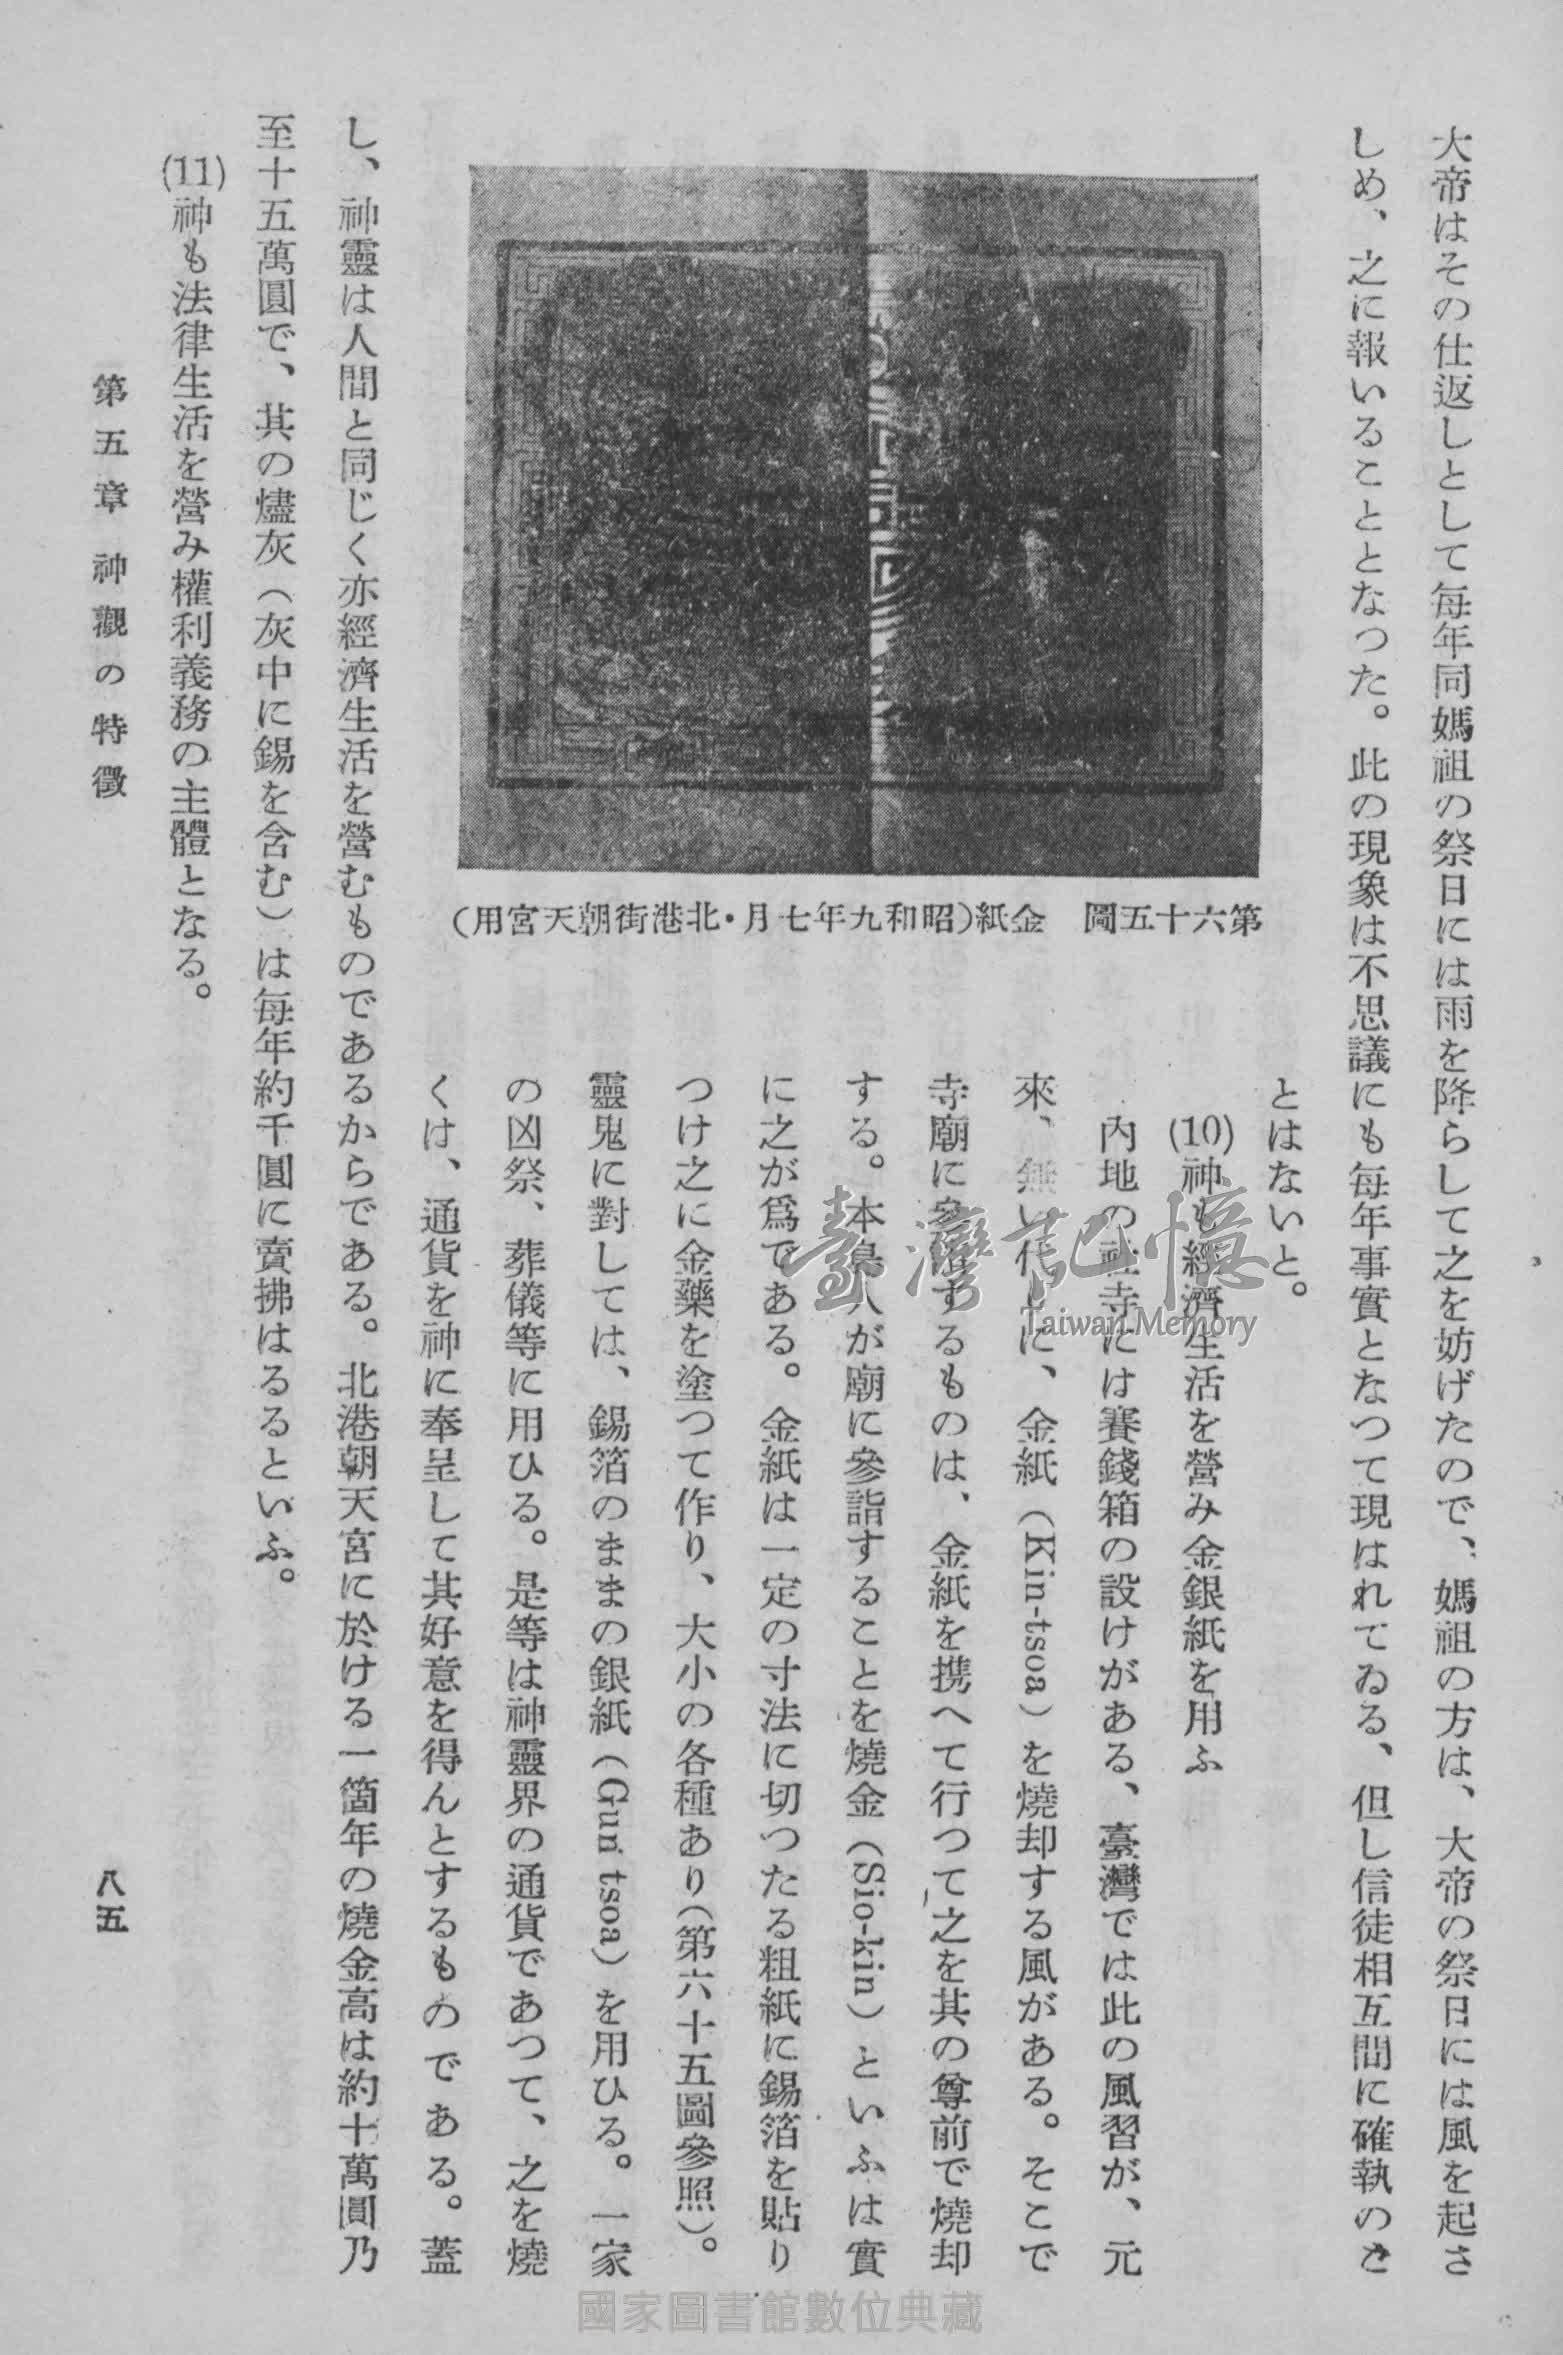 大帝はその仕返しとして毎年同媽祖の祭日には雨を降らして之を妨げたので、媽祖の方は、大帝の祭日には風を起さ
しめ、之に報いることとなつた。此の現象は不思議にも毎年事實となつて現はれてゐる、但し信徒相互間に確執のこ
とはないと。
(10)神も經濟生活を營み金銀紙を用ふ
內地の社寺には賽錢箱の設けがある、臺灣では此の風習が、元
來、無い代りに、金紙（Kin-tsoa）を燒却する風がある。そこで
寺廟に參詣するものは、金紙を携へて行つて之を其の尊前で燒却
する。本島人が廟に參詣することを燒金（Sio-kin）といふは實
に之が爲である。金紙は一定の寸法に切つたる粗紙に錫箔を貼り
つけ之に金藥を塗つて作り、大小の各種あり（第六十五圖參照）。
靈鬼に對しては、錫箔のままの銀紙（Gun tsoa）を用ひる。一家
の凶祭、葬儀等に用ひる。是等は神靈界の通貨であつて、之を燒
くは、通貨を神に奉呈して其好意を得んとするものである。蓋
し、神靈は人間と同じく亦經濟生活を營むものであるからである。北港朝天宮に於ける一箇年の燒金高は約十萬圓乃
至十五萬圓で、其の燼灰（灰中に錫を含む）は每年約千圓に賣拂はるるといふ。
(11)神も法律生活を營み權利義務の主體となる。
第六十五圖　金紙（昭和九年七月・北港街朝天宮用）
第五章　神觀の特徵
八五
臺灣記憶
Taiwan Memory
國家圖書館數位典藏